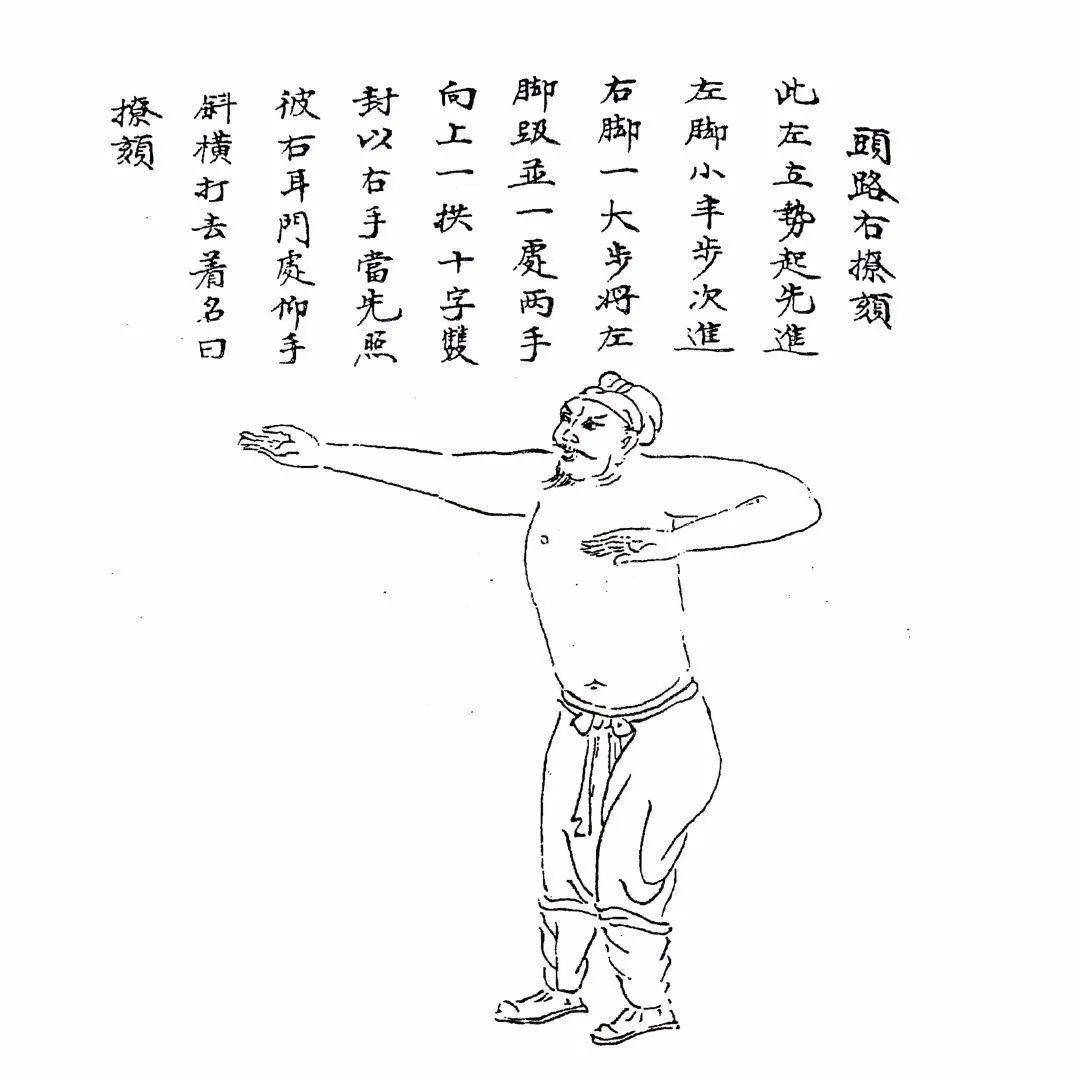 頭路右撩頦
此左立勢起先進
左脚小半步次進
右脚一大步将左
脚趿並一處两手
向上一拱十字雙
封以右手當先照
彼右耳門處仰手
斜橫打去着名曰
撩頦